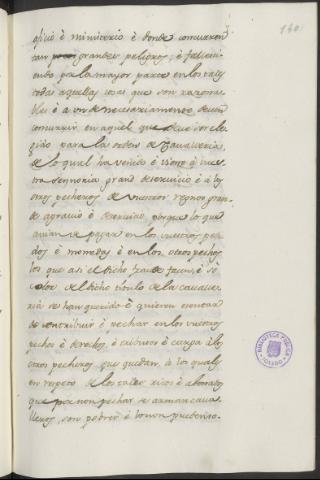 160
oficio è ministerio è donde concurren
tan grandes peligros, è fallecien
endo por la mayor parte en los tales
todas aquellas cosas que son razona
bles è a un de necesariamente deven
concurrir en aquel que deve ser ele
gido para la orden de Cavalleria,
de lo qual ha venido è viene à vues
tra Sennoria grand deservicio è à los
otros pecheros de vuestros regnos gran
de agravio è deservicio, porque lo que
avian de pagar en los vuestros pe
dos è monedas è en los otros pechos
los que asi el dicho fraude facen, è so
color del dicho titulo de la cavalle
ria se han querido è quieren escusar
de contribuir è pechar en los vuestros
pechos è derechos, è tributos è carga à los
otros pecheros que quedan, à los quales,
en respeto de los tales ricos è abonados
que por non pechar se arman cava
lleros, son pobres è lo non pueden so.
BIBLIOTECA PUBLICA
TOLEDO